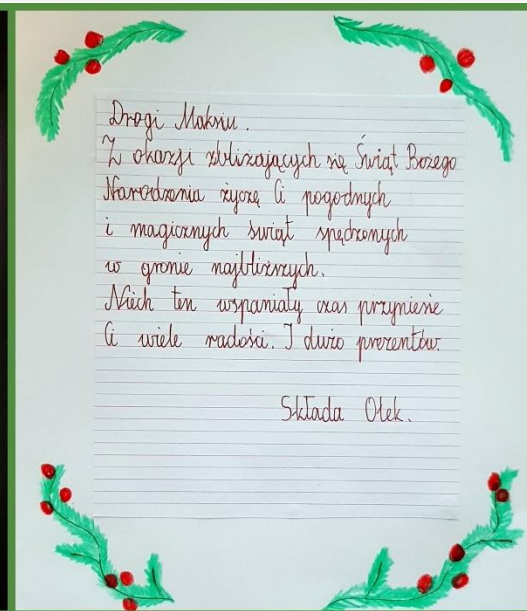 Drogi Maksiu.
Z okazji zbliżających się Świąt Bożego
Narodzenia życzę Ci pogodnych
i magicznych świąt spędzonych
w gronie najbliższych.
Niech ten wspaniały czas przyniesie
Ci wiele radości. I dużo prezentów.
Składa Olek.